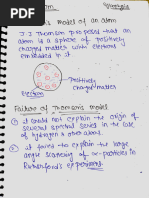 Thomson's model of an atom
J.J Thomson proposes that an
atom is a sphere of positively
charged matter with electrons
embedded in it.
Positively
charged matter
Electron
Failure of Thomson's model
1) it could not explain the origin of
several spectral series in the case
of hydrogen & other atoms.
2) it failed to explain the large
angle scattering of α-particles in
Rutherford's experiment.